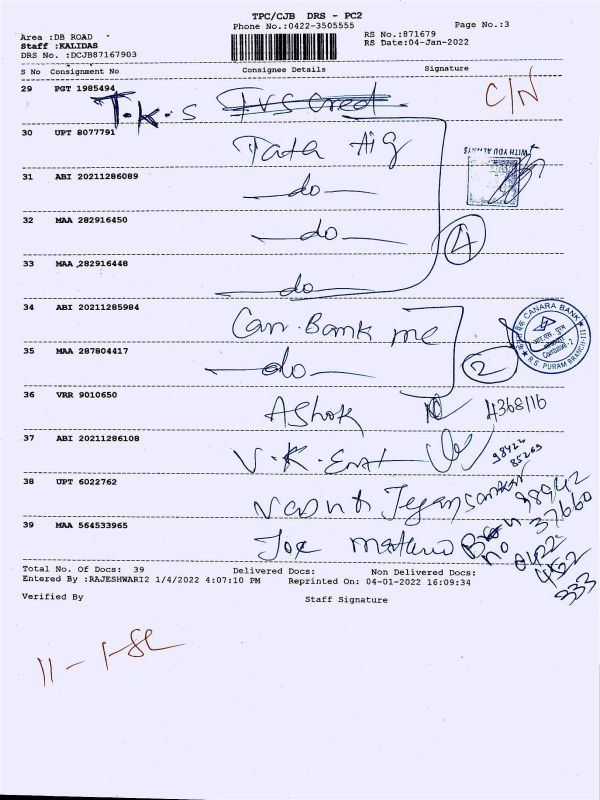 TPC/CJB DRS - PC2
Phone No.:0422-3505555
Page No.:3
Area :DB ROAD
RS No.:871679
Staff :KALIDAS
RS Date:04-Jan-2022
DRS No. :DCJB87167903
S No Consignment No Consignee Details Signature
29 PGT 1985494 T.K.S TVS Cred C/N
30 UPT 8077791 Tata Aig
WITH YOU ALWAYS
31 ABI 20211286089 do
32 MAA 282916450 do 4
33 MAA 282916448 do
34 ABI 20211285984 Can. Bank me
CANARA BANK
R.S. PURAM BRANCH
35 MAA 287804417 do 2
36 VRR 9010650 Ashok 4368/16
37 ABI 20211286108 V.K. Ent 98422
85269
38 UPT 6022762
39 MAA 564533965 Joe
Total No. Of Docs: 39 Delivered Docs: Non Delivered Docs:
Entered By :RAJESHWARI2 1/4/2022 4:07:10 PM Reprinted On: 04-01-2022 16:09:34
Verified By Staff Signature